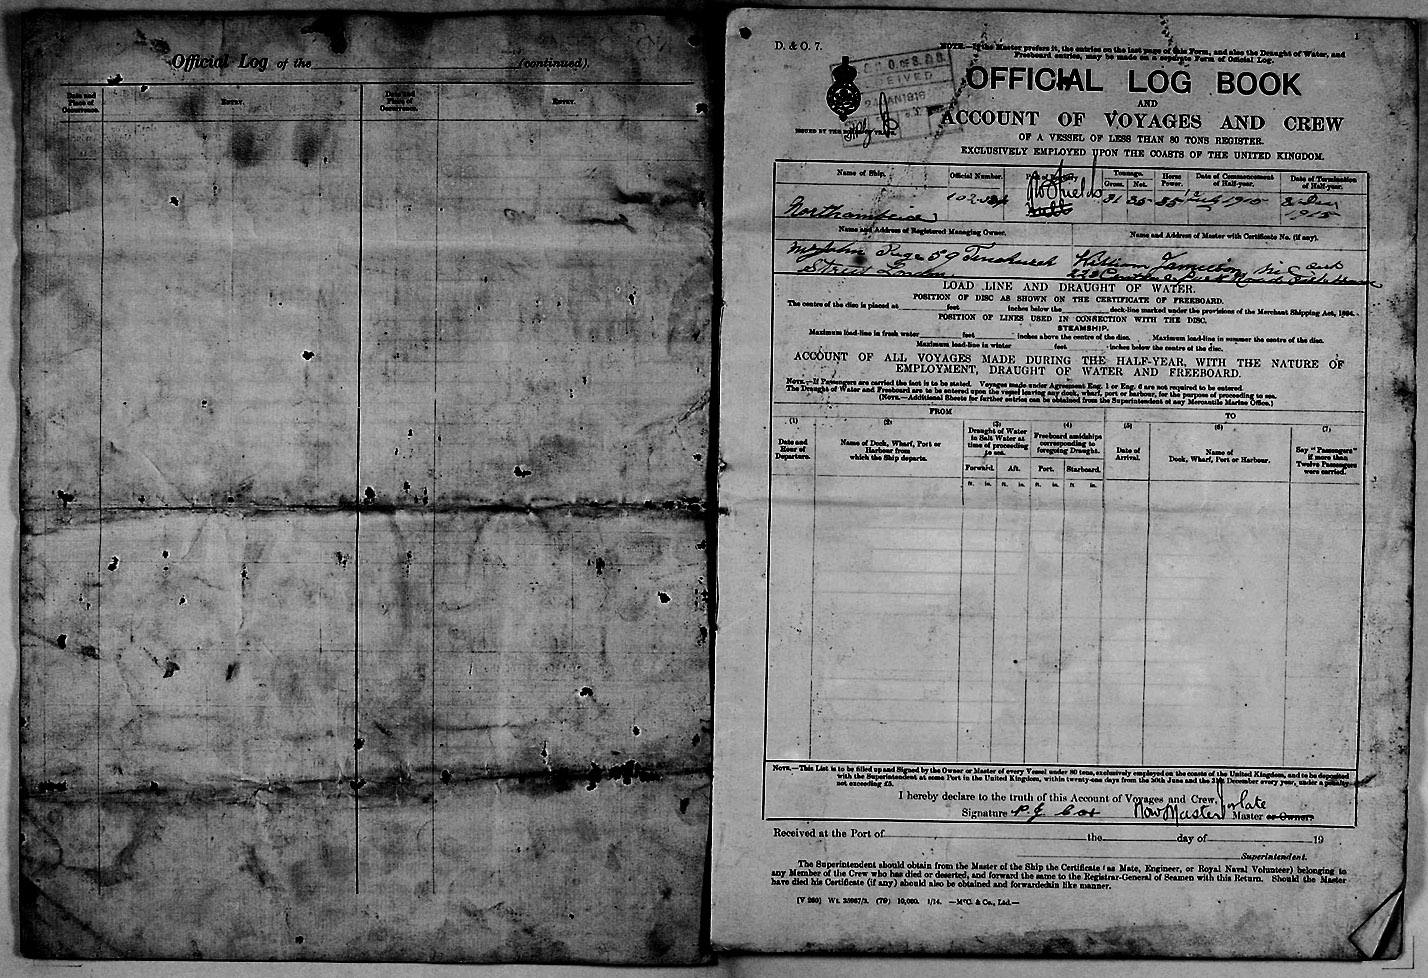 Official Log of the (continued).
Date and Place of Occurrence. Entry. Date and Place of Occurrence. Entry.
1
D. & O. 7.
NOTE.—If the Master prefers it, the entries on the last page of this Form, and also the Draught of Water, and
Freeboard entries, may be made on a separate Form of Official Log.
OFFICIAL LOG BOOK
AND
ACCOUNT OF VOYAGES AND CREW
OF A VESSEL OF LESS THAN 80 TONS REGISTER.
EXCLUSIVELY EMPLOYED UPON THE COASTS OF THE UNITED KINGDOM.
ISSUED BY THE BOARD OF TRADE
Name of Ship. Official Number. Port of Registry. Tonnage. Gross. Net. Horse Power. Date of Commencement of Half-year. Date of Termination of Half-year.
No Shields
31 25 35 1915
1915
Name and Address of Registered Managing Owner. Name and Address of Master with Certificate No. (if any).
Mr John Page 59 Fenchurch William Jamieson
Street London
LOAD LINE AND DRAUGHT OF WATER.
POSITION OF DISC AS SHOWN ON THE CERTIFICATE OF FREEBOARD.
The centre of the disc is placed at feet inches below the deck-line marked under the provisions of the Merchant Shipping Act, 1894.
POSITION OF LINES USED IN CONNECTION WITH THE DISC.
STEAMSHIP.
Maximum load-line in fresh water feet inches above the centre of the disc. Maximum load-line in summer the centre of the disc.
Maximum load-line in winter feet inches below the centre of the disc.
ACCOUNT OF ALL VOYAGES MADE DURING THE HALF-YEAR, WITH THE NATURE OF
EMPLOYMENT, DRAUGHT OF WATER AND FREEBOARD.
NOTE.—If Passengers are carried the fact is to be stated. Voyages made under Agreement Eng. 1 or Eng. 6 are not required to be entered.
The Draught of Water and Freeboard are to be entered upon the vessel leaving any dock, wharf, port or harbour, for the purpose of proceeding to sea.
(NOTE.—Additional Sheets for further entries can be obtained from the Superintendent of any Mercantile Marine Office.)
FROM TO
(1) (2) (3) (4) (5) (6) (7)
Date and Hour of Departure. Name of Dock, Wharf, Port or Harbour from which the Ship departs. Draught of Water in Salt Water at time of proceeding to sea. Freeboard amidships corresponding to foregoing Draught. Date of Arrival. Name of Dock, Wharf, Port or Harbour. Say "Passengers" if more than Twelve Passengers were carried.
Forward. Aft. Port. Starboard.
ft. in. ft. in. ft. in. ft. in.
NOTE.—This List is to be filled up and Signed by the Owner or Master of every Vessel under 80 tons, exclusively employed on the coasts of the United Kingdom, and to be deposited
with the Superintendent at some Port in the United Kingdom, within twenty-one days from the 30th June and the 31st December every year, under a penalty
not exceeding £5.
I hereby declare to the truth of this Account of Voyages and Crew, for late
Signature P. J. Cox Now Master Master or Owner
Received at the Port of the day of 19
Superintendent.
The Superintendent should obtain from the Master of the Ship the Certificate (as Mate, Engineer, or Royal Naval Volunteer) belonging to
any Member of the Crew who has died or deserted, and forward the same to the Registrar-General of Seamen with this Return. Should the Master
have died his Certificate (if any) should also be obtained and forwarded in like manner.
[V 260] Wt. 35967/3. (79) 10,000. 1/14. —McC. & Co., Ltd.—